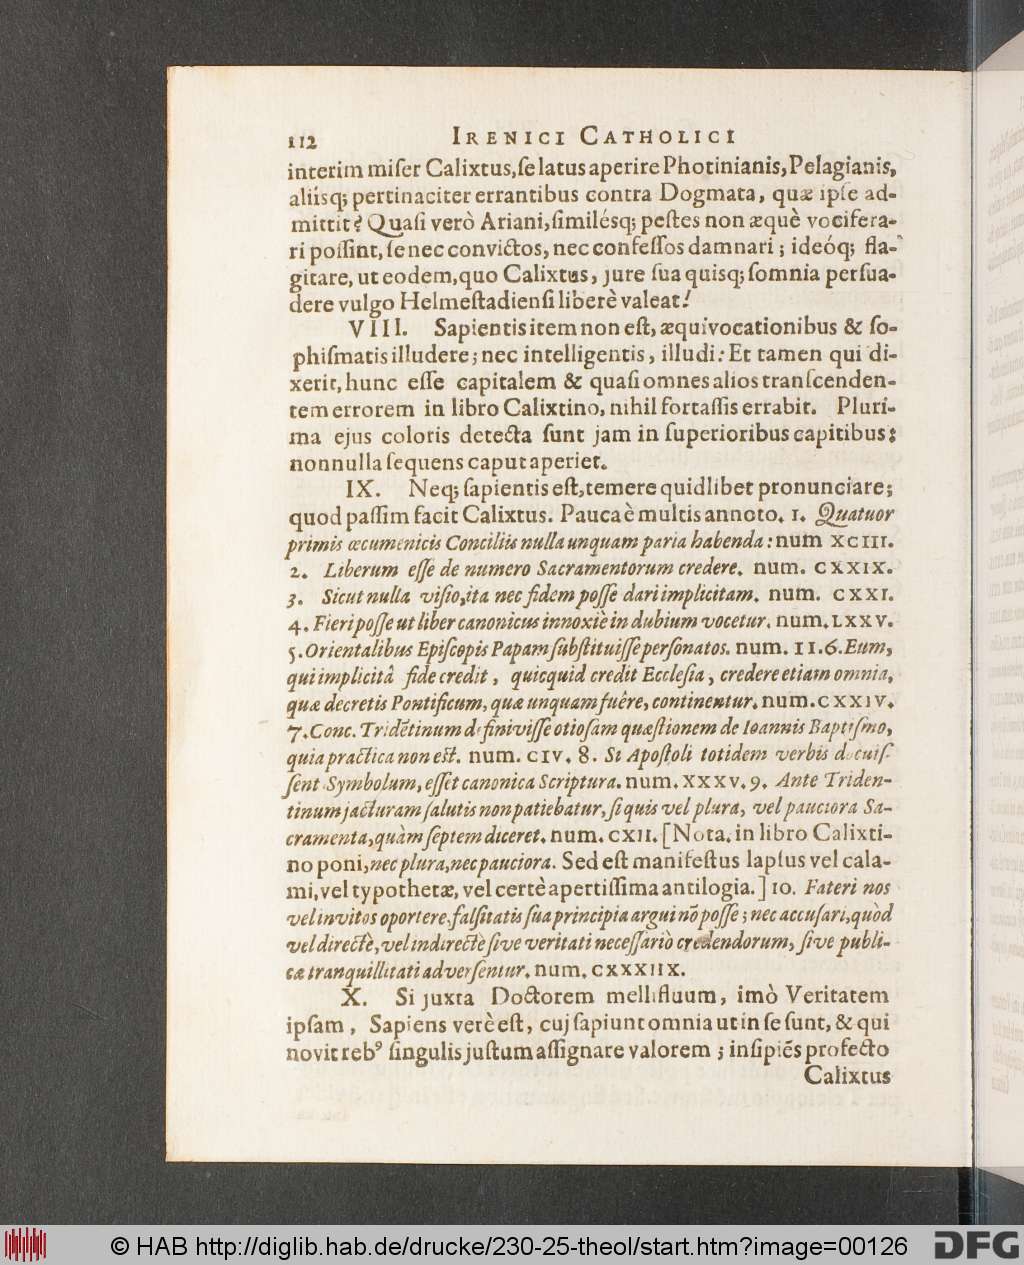 112 IRENICI CATHOLICI
interim miſer Calixtus, ſe latus aperire Photinianis, Pelagianis,
aliiſq; pertinaciter errantibus contra Dogmata, quæ ipſe ad-
mittit? Quaſi verò Ariani, ſimiléſq; peſtes non æquè vocifera-
ri poſſint, ſe nec convictos, nec confeſſos damnari; ideóq; fla-
gitare, ut eodem, quo Calixtus, jure ſua quisq; ſomnia perſua-
dere vulgo Helmeſtadienſi liberè valeat!
VIII. Sapientis item non eſt, æquivocationibus & ſo-
phiſmatis illudere; nec intelligentis, illudi: Et tamen qui di-
xerit, hunc eſſe capitalem & quaſi omnes alios tranſcenden-
tem errorem in libro Calixtino, nihil fortaſſis errabit. Pluri-
ma ejus coloris detecta ſunt jam in ſuperioribus capitibus:
nonnulla ſequens caput aperiet.
IX. Neq; ſapientis eſt, temere quidlibet pronunciare;
quod paſſim facit Calixtus. Pauca è multis annoto. 1. Quatuor
primis œcumenicis Conciliis nulla unquam paria habenda: num XCIII.
2. Liberum eſſe de numero Sacramentorum credere. num. CXXIX.
3. Sicut nulla viſio, ita nec fidem poſſe dari implicitam. num. CXXI.
4. Fieri poſſe ut liber canonicus innoxiè in dubium vocetur. num. LXXV.
5. Orientalibus Epiſcopis Papam ſubſtituiſſe perſonatos. num. II. 6. Eum,
qui implicitâ fide credit, quicquid credit Eccleſia, credere etiam omnia,
quæ decretis Pontificum, quæ unquam fuêre, continentur. num. CXXIV.
7. Conc. Tridētinum definiviſſe otioſam quæſtionem de Ioannis Baptiſmo,
quia practica non eſt. num. CIV. 8. Si Apoſtoli totidem verbis docuiſ-
ſent Symbolum, eſſet canonica Scriptura. num. XXXV. 9. Ante Triden-
tinum jacturam ſalutis non patiebatur, ſi quis vel plura, vel pauciora Sa-
cramenta, quàm ſeptem diceret. num. CXII. [Nota. in libro Calixti-
no poni, nec plura, nec pauciora. Sed eſt manifeſtus lapſus vel cala-
mi, vel typothetæ, vel certè apertiſſima antilogia.] 10. Fateri nos
vel invitos oportere, falſitatis ſua principia argui nō poſſe; nec accuſari, quòd
vel directè, vel indirectè ſive veritati neceſſariò credendorum, ſive publi-
cæ tranquillitati adverſentur. num. CXXXIIX.
X. Si juxta Doctorem mellifluum, imò Veritatem
ipſam, Sapiens verè eſt, cuj ſapiunt omnia ut in ſe ſunt, & qui
novit rebꝰ ſingulis juſtum aſſignare valorem; inſipiēs profecto
Calixtus
© HAB http://diglib.hab.de/drucke/230-25-theol/start.htm?image=00126
DFG